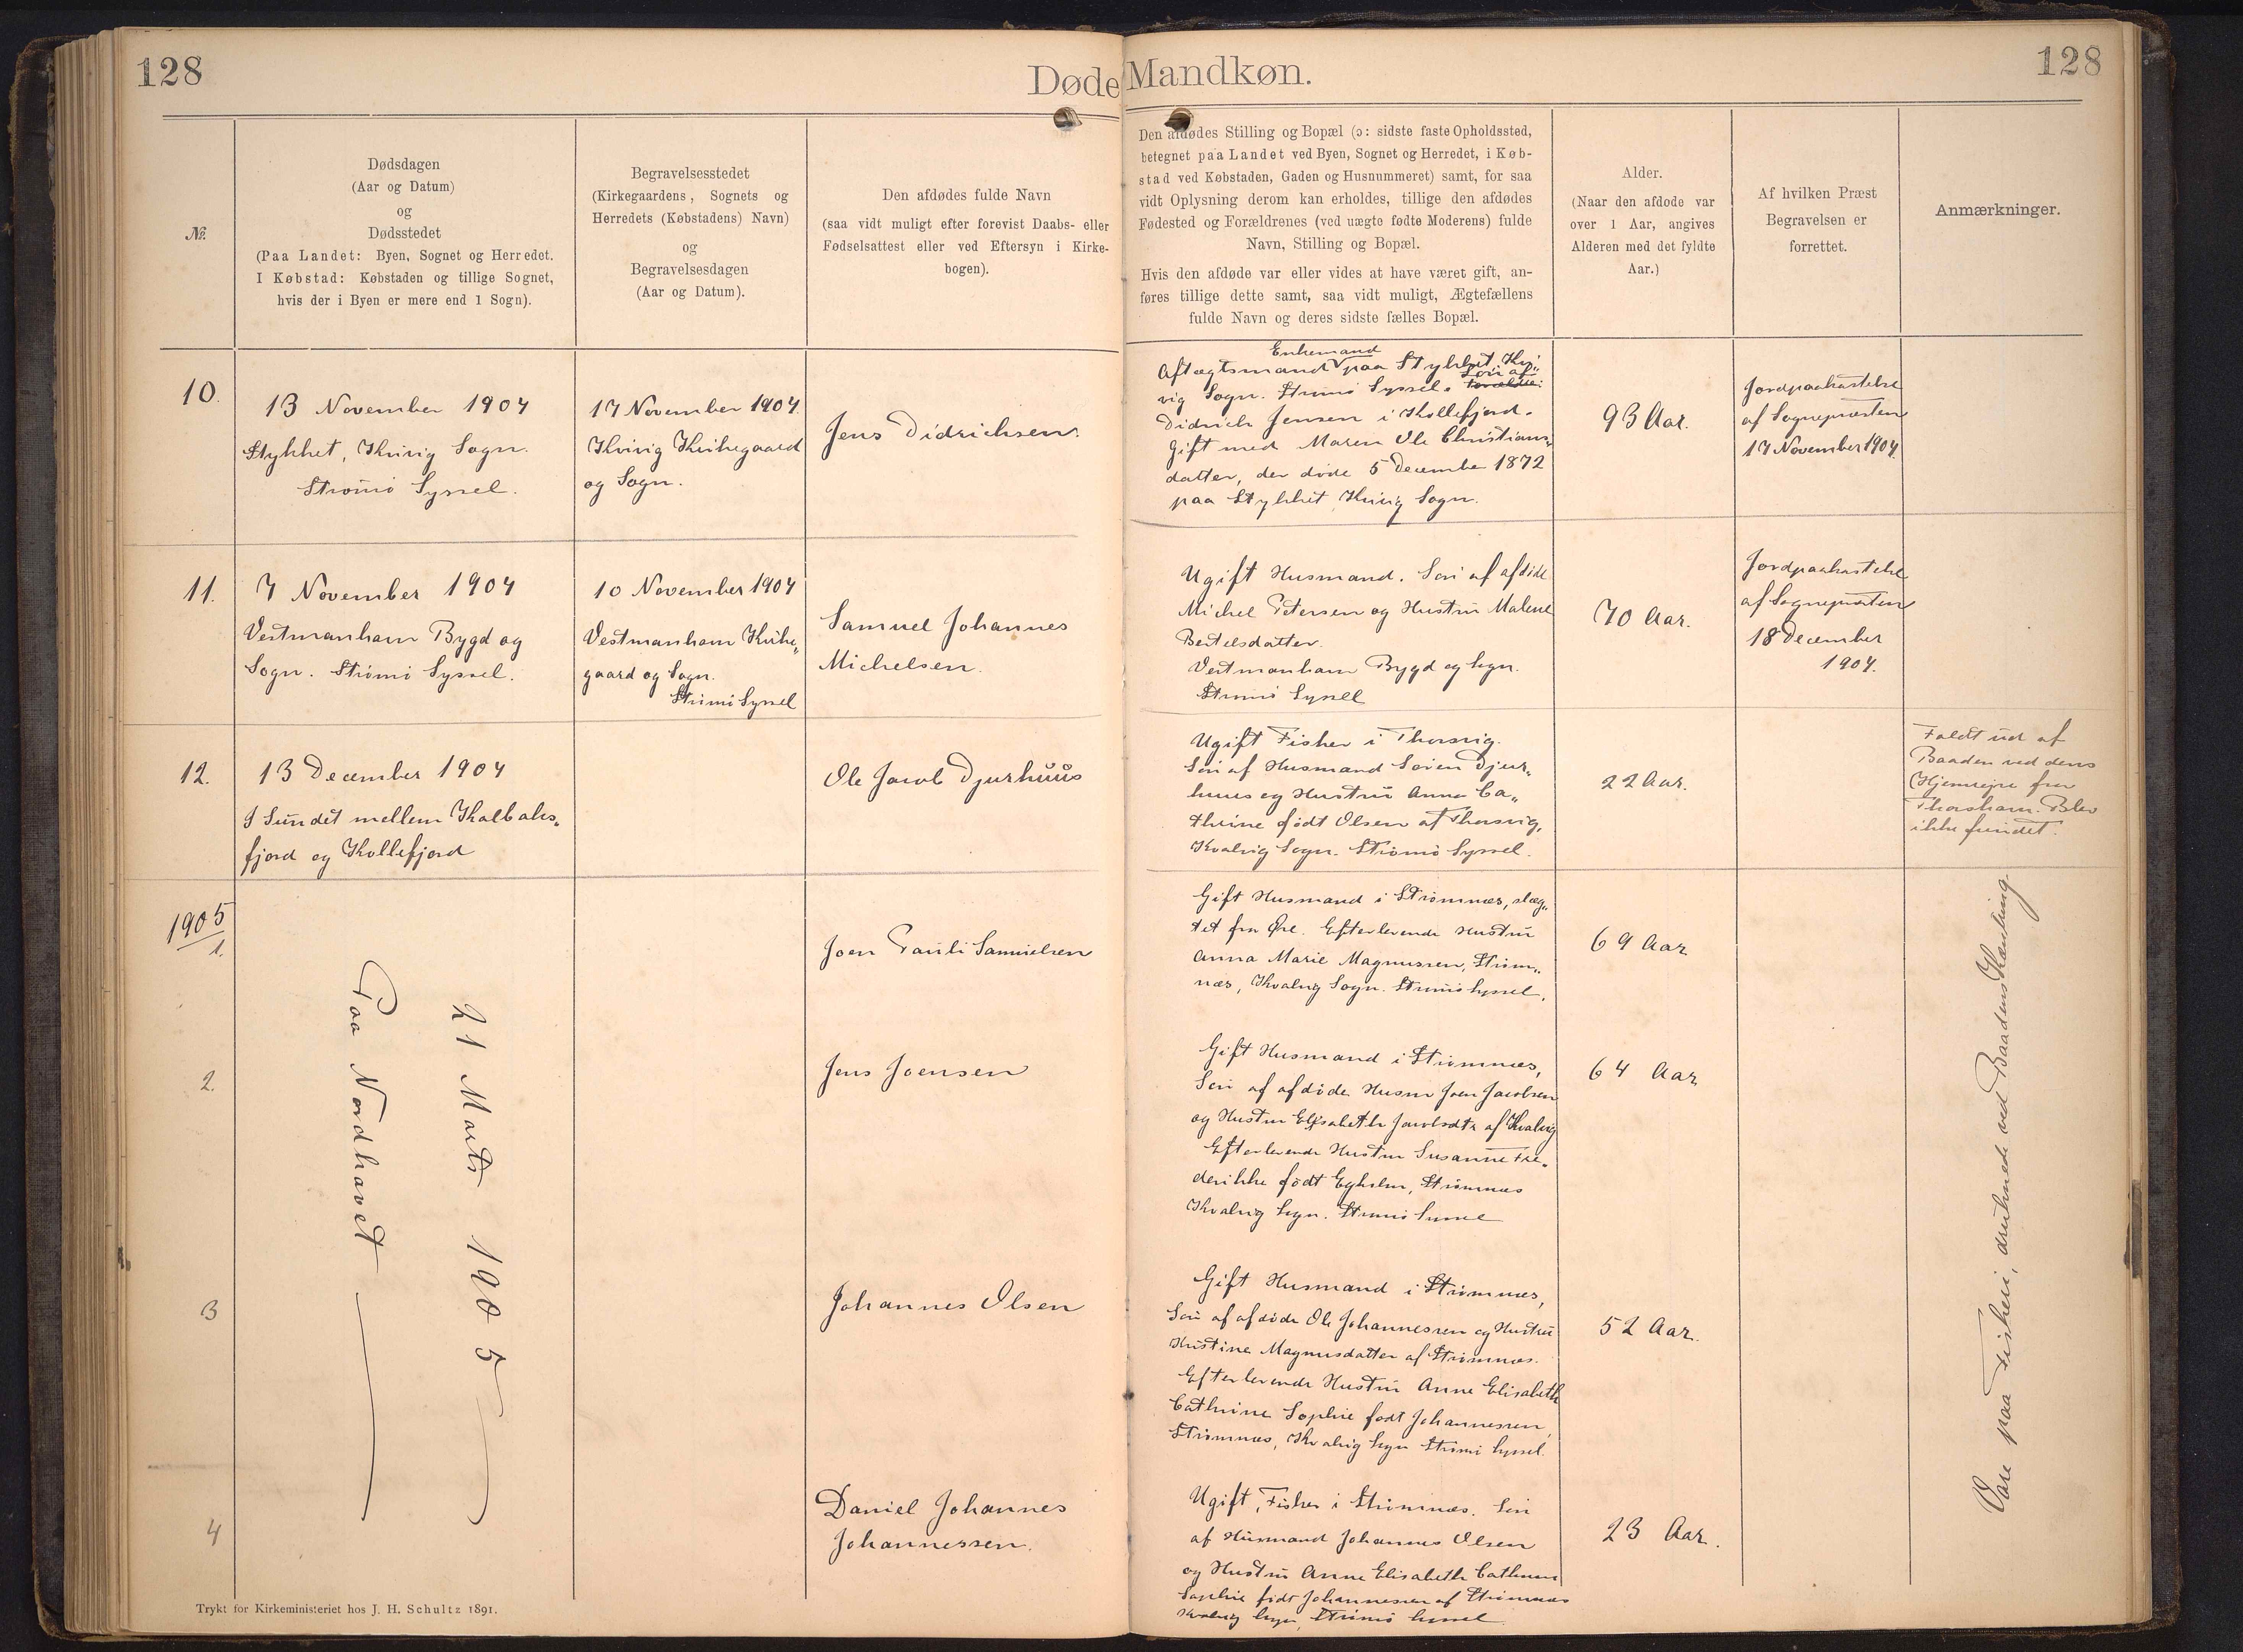 128
Døde Mandkøn.
128
№.
Dødsdagen
(Aar og Datum)
og
Dødsstedet
(Paa Landet: Byen, Sognet og Herredet.
I Købstad: Købstaden og tillige Sognet,
hvis der i Byen er mere end 1 Sogn).
Begravelsesstedet
(Kirkegaardens, Sognets og
Herredets (Købstadens) Navn)
og
Begravelsesdagen
(Aar og Datum).
Den afdødes fulde Navn
(saa vidt muligt efter forevist Daabs- eller
Fødselsattest eller ved Eftersyn i Kirke-
bogen).
Den afdødes Stilling og Bopæl (ɔ: sidste faste Opholdssted,
betegnet paa Landet ved Byen, Sognet og Herredet, i Køb-
stad ved Købstaden, Gaden og Husnummeret) samt, for saa
vidt Oplysning derom kan erholdes, tillige den afdødes
Fødested og Forældrenes (ved uægte fødte Moderens) fulde
Navn, Stilling og Bopæl.
Hvis den afdøde var eller vides at have været gift, an-
føres tillige dette samt, saa vidt muligt, Ægtefællens
fulde Navn og deres sidste fælles Bopæl.
Alder.
(Naar den afdøde var
over 1 Aar, angives
Alderen med det fyldte
Aar.)
Af hvilken Præst
Begravelsen er
forrettet.
Anmærkninger.
10.
13 November 1904
Stykket, Kvivig Sogn.
Strömö Syssel.
17 November 1904.
Kvivig Kirkegaard
og Sogn.
Jens Didrichsen.
Enkemand
Aftægtsmand paa Stykket, Kvi„
vig Sogn. Strömö Syssel. Sön af
Didrich Jensen i Kollefjord.
Gift med Maren Ole Christians„
datter, der döde 5 December 1872
paa Stykket, Kvivig Sogn.
93 Aar.
Jordpaakastelse
af Sognepræsten
17 November 1904.
11.
7 November 1904
Vestmanhavn Bygd og
Sogn. Strömö Syssel.
10 November 1904
Vestmanhavn Kirke„
gaard og Sogn.
Strömö Syssel
Samuel Johannes
Michelsen.
Ugift Husmand. Sön af afdöde
Michel Petersen og Hustru Malene
Bertelsdatter.
Vestmanhavn Bygd og Sogn.
Strömö Syssel
70 Aar.
Jordpaakastelse
af Sognepræsten
18 December
1904.
12.
13 December 1904
I Sundet mellem Kalbaks„
fjord og Kollefjord
Ole Jacob Djurhuus
Ugift Fisker i Thorsvig.
Sön af Husmand Sören Djur„
huus og Hustru Anna Ca„
thrine født Olsen af Thorsvig,
Kvalvig Sogn. Strömö Syssel.
22 Aar.
Faldt ud af
Baaden ved dens
Hjemrejse fra
Thorshavn. Blev
ikke fundet.
1905
1.
21 Marts 1905
Paa Nordhavet
Joen Pauli Samuelsen
Gift Husmand i Strömnæs, slæg„
tet fra Øre. Efterlevende Hustru
Anna Marie Magnussen, Ström„
næs, Kvalvig Sogn. Strömö Syssel.
69 Aar
2.
Jens Joensen
Gift Husmand i Strömnæs,
Sön af afdöde Husm Joen Jacobsen
og Hustru Elisabeth Jacobsdtr af Kvalvig
Efterlevende Hustru Susanne Fre„
derikke födt Egholm, Strömnæs
Kvalvig Sogn. Strömö Syssel
64 Aar
3
Johannes Olsen
Gift Husmand i Strömnæs,
Sön af afdöde Ole Johannessen og Hustru
Kristine Magnusdatter af Strömnæs.
Efterlevende Hustru Anne Elisabeth
Cathrine Sophie født Johannessen,
Strömnæs, Kvalvig Sogn Strömö Syssel.
52 Aar.
4
Daniel Johannes
Johannessen.
Ugift, Fisker i Strömnæs. Sön
af Husmand Johannes Olsen
og Hustru Anne Elisabeth Cathrine
Sophie født Johannessen af Strömnæs
Kvalvig Sogn, Strömö Syssel
23 Aar.
Vare paa Fiskeri, druknede ved Baadens Kæntring
Trykt for Kirkeministeriet hos J. H. Schultz 1891.